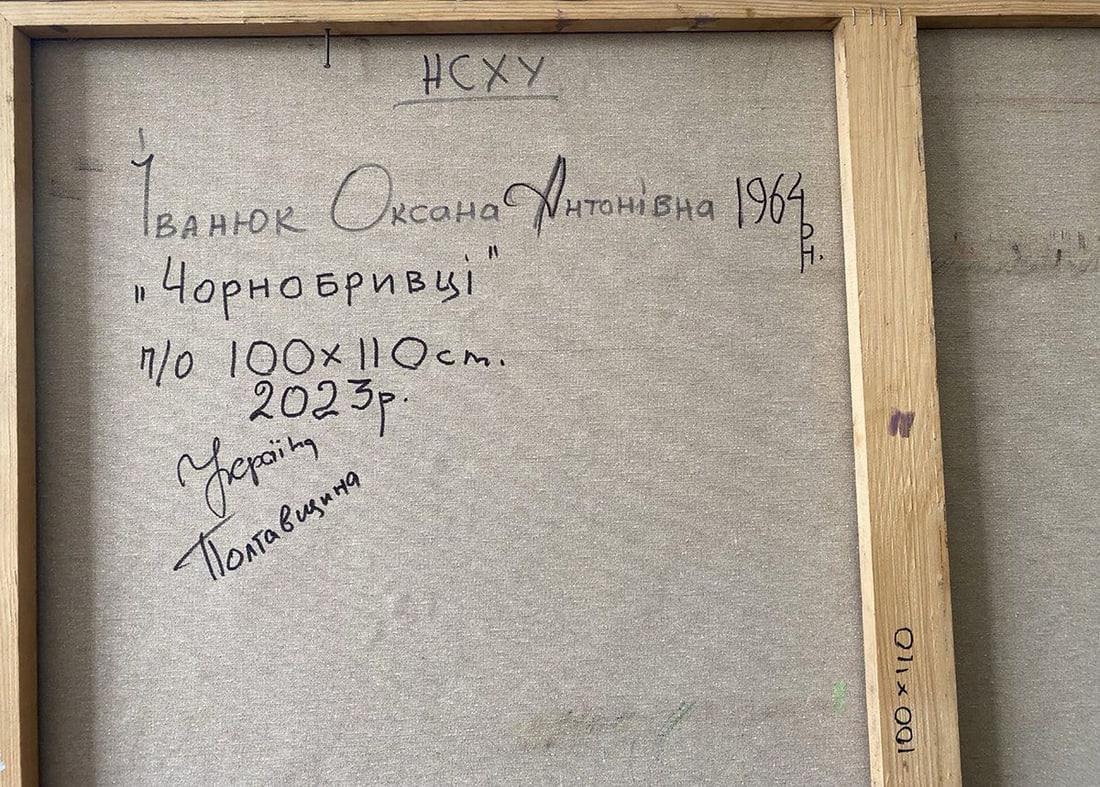 НСХУ
Іванюк Оксана Антонівна 1964 р.н.
"Чорнобривці"
п/о 100х110 ст.
2023р.
Україна
Полтавщина
100 х 110